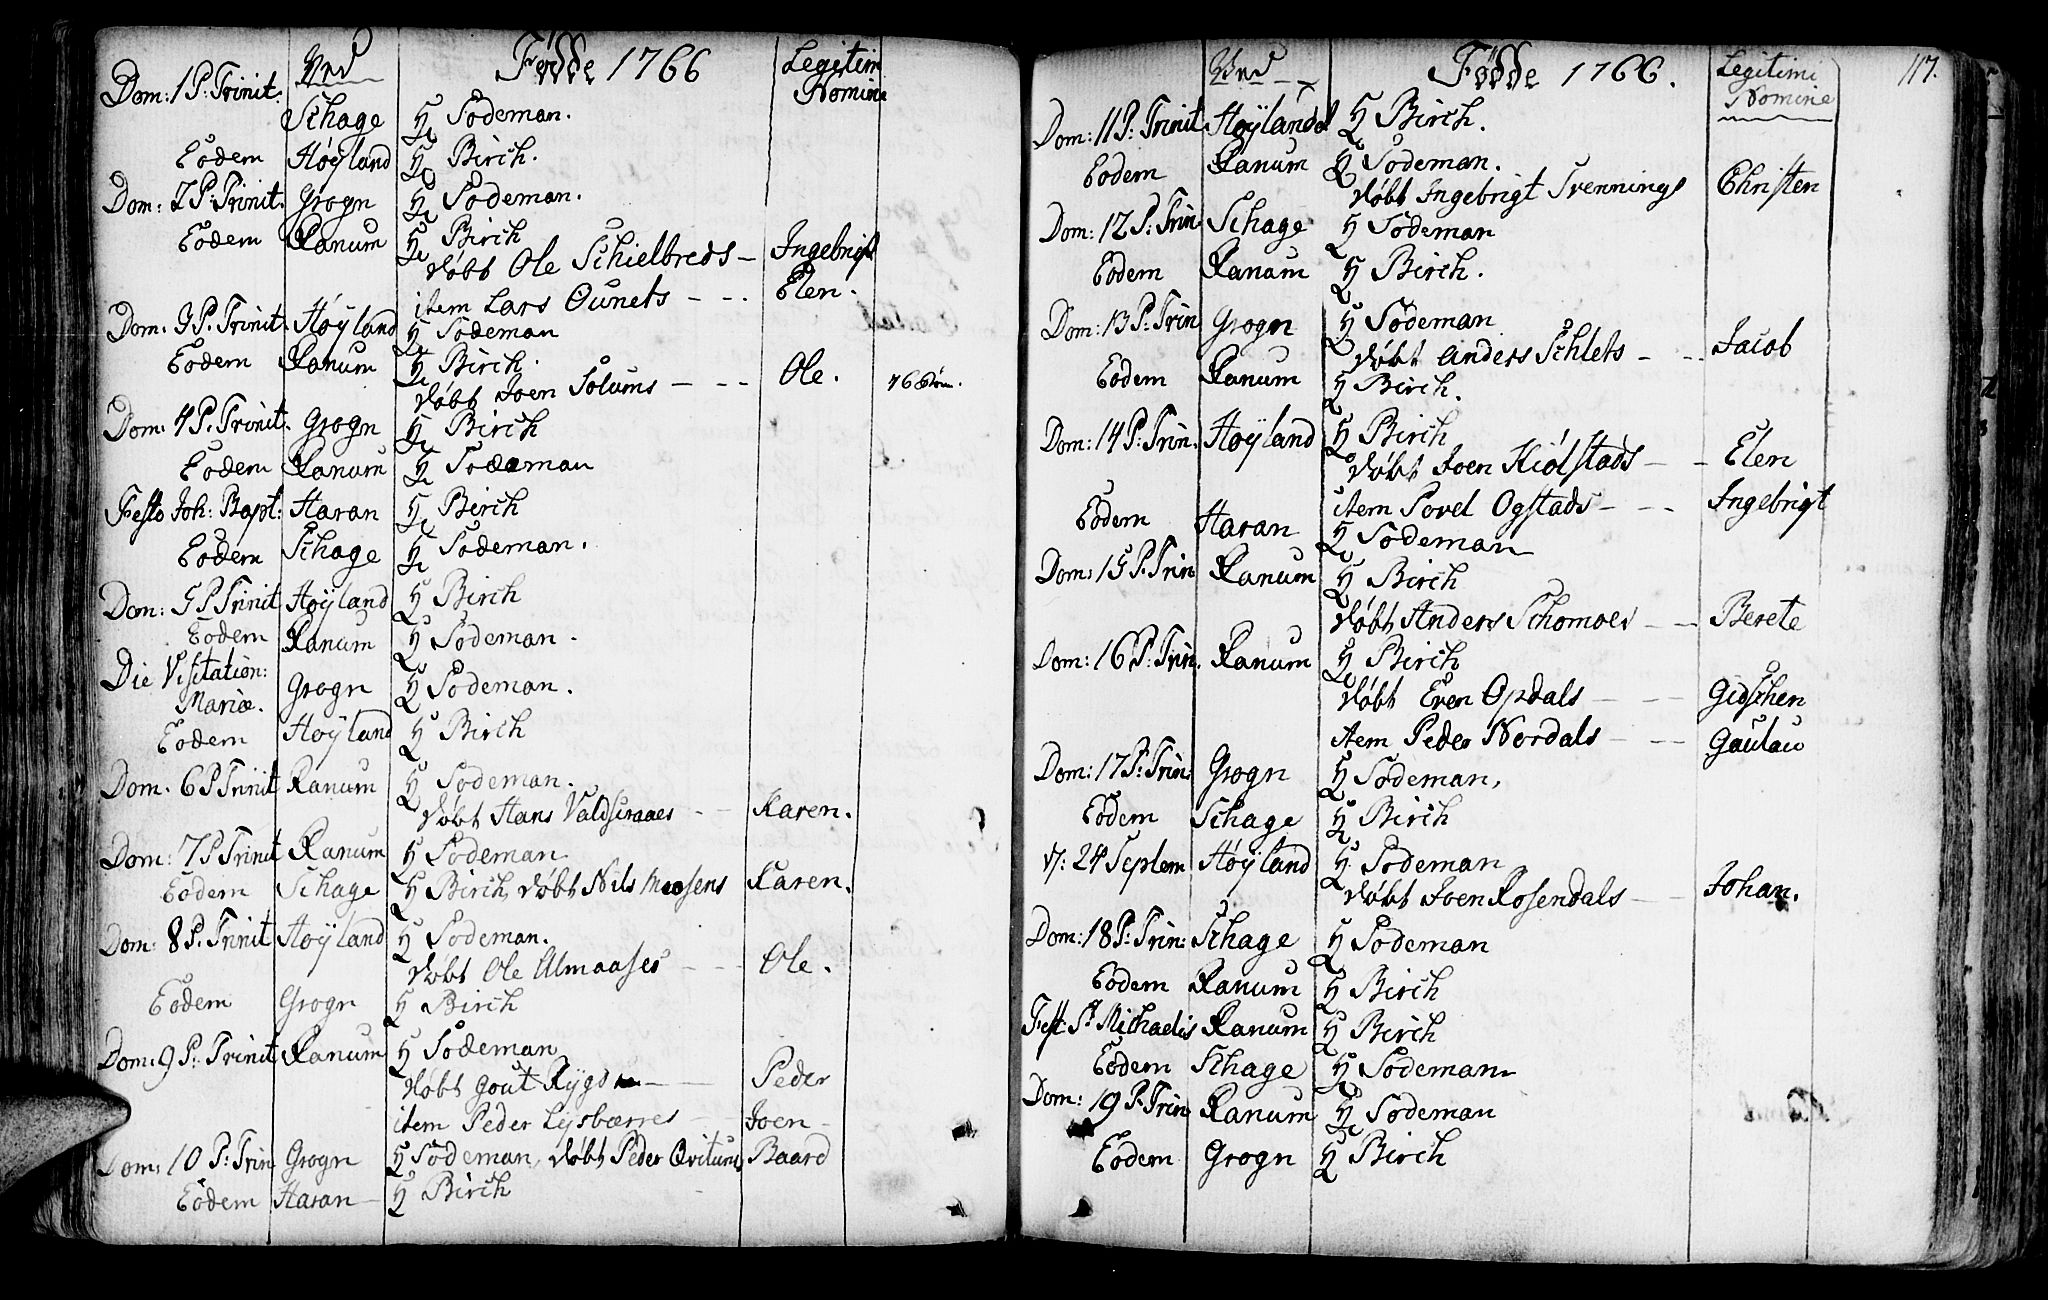 Ved Fødde 1766 Legitimi
Nomine
Dom: 1 P: Trinit. Schage H Sodeman.
Eodem Høyland H Birch.
Dom: 2 P: Trinit. Grogn H Sodeman.
Eodem Ranum H Birch
døbt Ole Schielbreds – Ingebrigt
item Lars Ounets – – . Elen.
Dom. 3 P. Trinit. Høyland H Sodeman
Eodem Ranum H Birch.
døbt Joen Solums – – – Ole.
Dom: 4 P. Trinit. Grogn H Birch
Eodem Ranum H Sodeman
Festo Joh: Bapt: Haran H Birch
Eodem Schage H Sodeman.
Dom: 5 P Trinit Høyland H Birch
Eodem Ranum H Sodeman.
Die Visitation:
Mariæ. Grogn H Sodeman.
Eodem Høyland H Birch
Dom. 6 P Trinit Ranum H Sodeman.
døbt Hans Valdscraaes – – Karen.
Dom: 7 P Trinit Ranum H Sodeman
Eodem Schage H Birch, døbt Nils Moosens Karen.
Dom: 8 P. Trinit Høyland H Sodeman.
døbt Ole Almaases – – Ole.
Eodem Grogn H Birch
Dom: 9 P: Trinit Ranum H Sodeman
døbt Gout Rygs – – Peder
item Peder Lysbærres – Joen –
Dom: 10 P: Trin Grogn H Sodeman, døbt Peder Qvitums Baard
Eodem Haran – H Birch
Ved – – Fødde 1766. Legitimi 117.
Nomine
Dom: 11 P: Trinit Høylandet H Birch.
Eodem Ranum H Sodeman.
døbt Ingebrigt Svennings Christen
Dom: 12 P: Trin Schage H Sodeman
Eodem Ranum H Birch.
Dom: 13 P: Trin Grogn H Sodeman
døbt Anders Schlets – – – Jacob
Eodem Ranum H Birch.
Dom: 14 P: Trin. Høyland H Birch
døbt Joen Kiolstads – – Elen
item Povel Ogstads – – – Ingebrigt
Eodem Haran H Sodeman
Dom: 15 P. Trin Ranum H Birch
døbt Anders Schomoes – – Berete
Dom: 16 P: Trin. Ranum H Birch
døbt Even Opdals – – – Gidschen
item Peder Nordals – – – Gaulau
Dom: 17 P: Trin: Grogn H Sodeman,
Eodem Schage H Birch
d: 24 Septem Høyland H Sodeman
døbt Joen Rosendals – – Johan.
Dom: 18 P: Trin: Schage H Sodeman
Eodem Ranum H Birch
Fest: St Michaelis Ranum H Birch
Eodem Schage H Sodeman
Dom: 19 P: Trin Ranum H Sodeman
Eodem Grogn H Birch